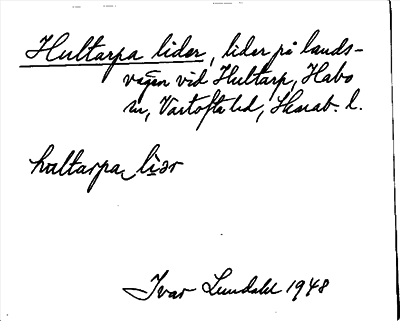 Hultarpa lider, lider på lands-
vägen vid Hultarp, Habo
sn, Vartofta hd, Skarab. l.
hultarpa liər
Ivar Lundahl 1948